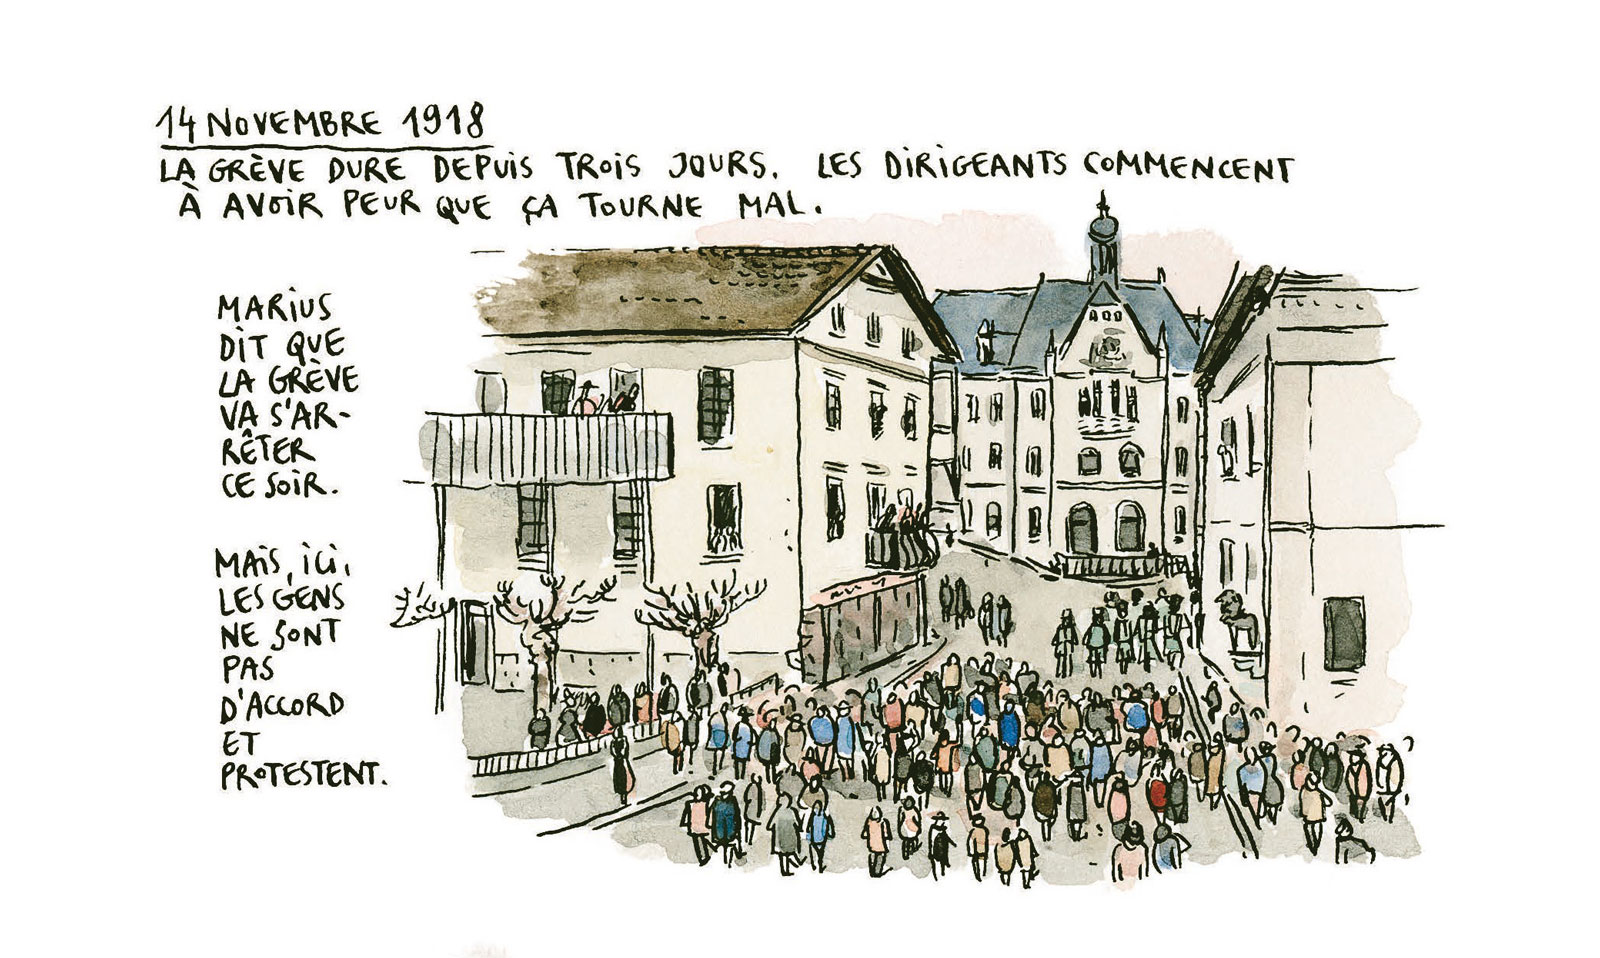 14 NOVEMBRE 1918
LA GRÈVE DURE DEPUIS TROIS JOURS. LES DIRIGEANTS COMMENCENT
À AVOIR PEUR QUE ÇA TOURNE MAL.
MARIUS
DIT QUE
LA GRÈVE
VA S'AR-
RÊTER
CE SOIR.
MAIS, ICI,
LES GENS
NE SONT
PAS
D'ACCORD
ET
PROTESTENT.